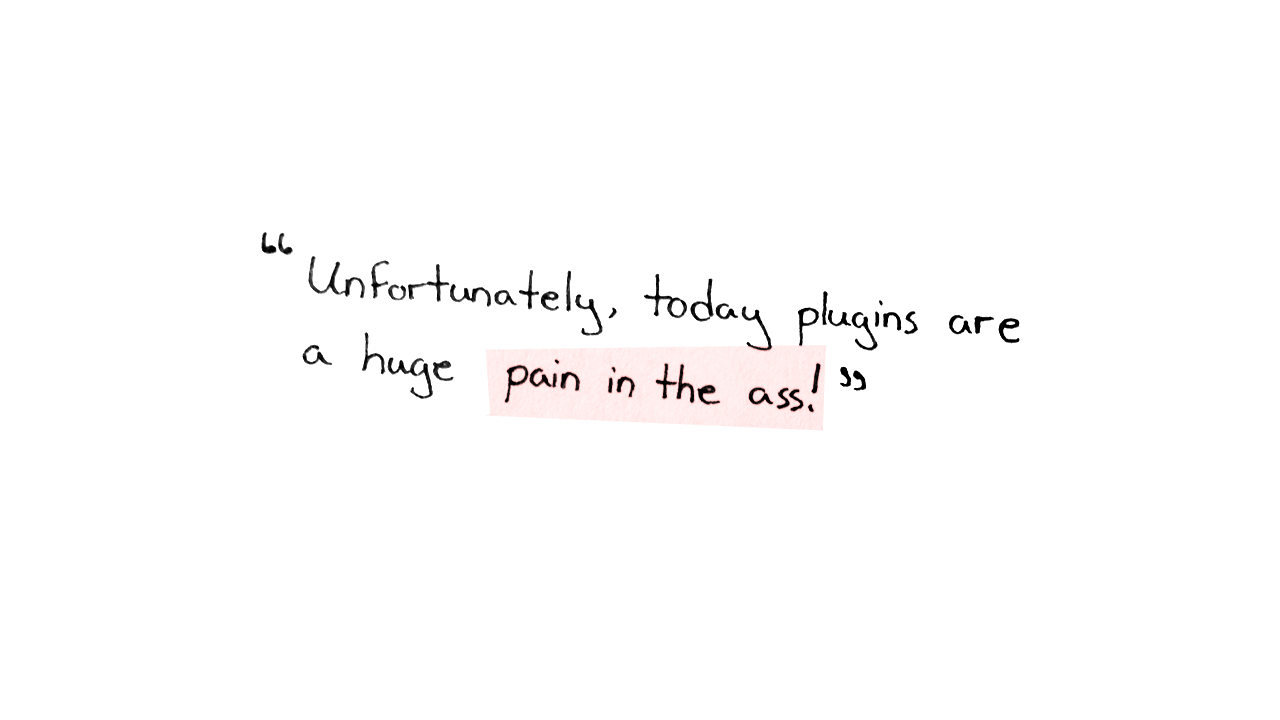 “Unfortunately, today plugins are
a huge pain in the ass!”